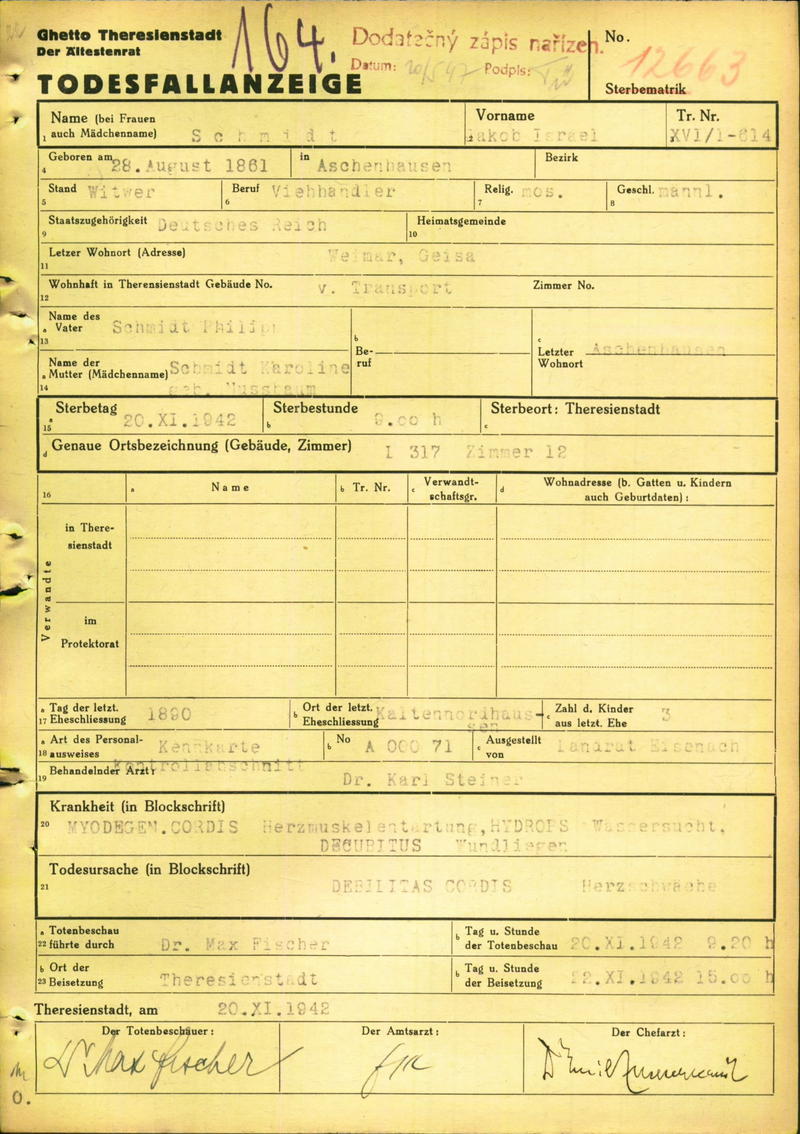 Ghetto Theresienstadt
Der Ältestenrat
TODESFALLANZEIGE
164.
Dodatečný zápis nařízen.
Datum: Podpis:
No. 12663
Sterbematrik
Name (bei Frauen
1 auch Mädchenname) Schmidt
2 Vorname Jakob Israel
3 Tr. Nr. XVI/1-614
4 Geboren am 28. August 1861 in Aschenhausen Bezirk
5 Stand Witwer 6 Beruf Viehhändler 7 Relig. mos. 8 Geschl. männl.
9 Staatszugehörigkeit Deutsches Reich 10 Heimatsgemeinde
11 Letzer Wohnort (Adresse) Weimar, Geisa
12 Wohnhaft in Therensienstadt Gebäude No. v. Transport Zimmer No.
13 a Name des Vater Schmidt Philipp
14 a Name der Mutter (Mädchenname) Schmidt Karoline
geb. Nussbaum
b Beruf
c Letzter Wohnort Aschenhausen
15 a Sterbetag 20.XI.1942 b Sterbestunde 9.00 h c Sterbeort: Theresienstadt
d Genaue Ortsbezeichnung (Gebäude, Zimmer) L 317 Zimmer 12
16 a Name b Tr. Nr. c Verwandt-
schaftsgr. d Wohnadresse (b. Gatten u. Kindern
auch Geburtdaten):
Verwandte
in There-
sienstadt
im
Protektorat
17 a Tag der letzt. Eheschliessung 1890 b Ort der letzt. Eheschliessung Kaltennordhaus-
sen c Zahl d. Kinder aus letzt. Ehe 3
18 a Art des Personal-
ausweises Kennkarte b No A 000 71 c Ausgestellt von Landrat Eisenach
Kontrollabschnitt
19 Behandelnder Arzt Dr. Karl Steiner
Krankheit (in Blockschrift)
20 MYODEGEN.CORDIS Herzmuskelentartung, HYDROPS Wassersucht,
DECUBITUS Wundliegen
Todesursache (in Blockschrift)
21 DEBILITAS CORDIS Herzschwäche
22 a Totenbeschau führte durch Dr. Max Fischer b Tag u. Stunde der Totenbeschau 20.XI.1942 9.20 h
23 b Ort der Beisetzung Theresienstadt b Tag u. Stunde der Beisetzung 22.XI.1942 15.00 h
Theresienstadt, am 20.XI.1942
Der Totenbeschauer: Der Amtsarzt: Der Chefarzt:
Dr Max Fischer
O.